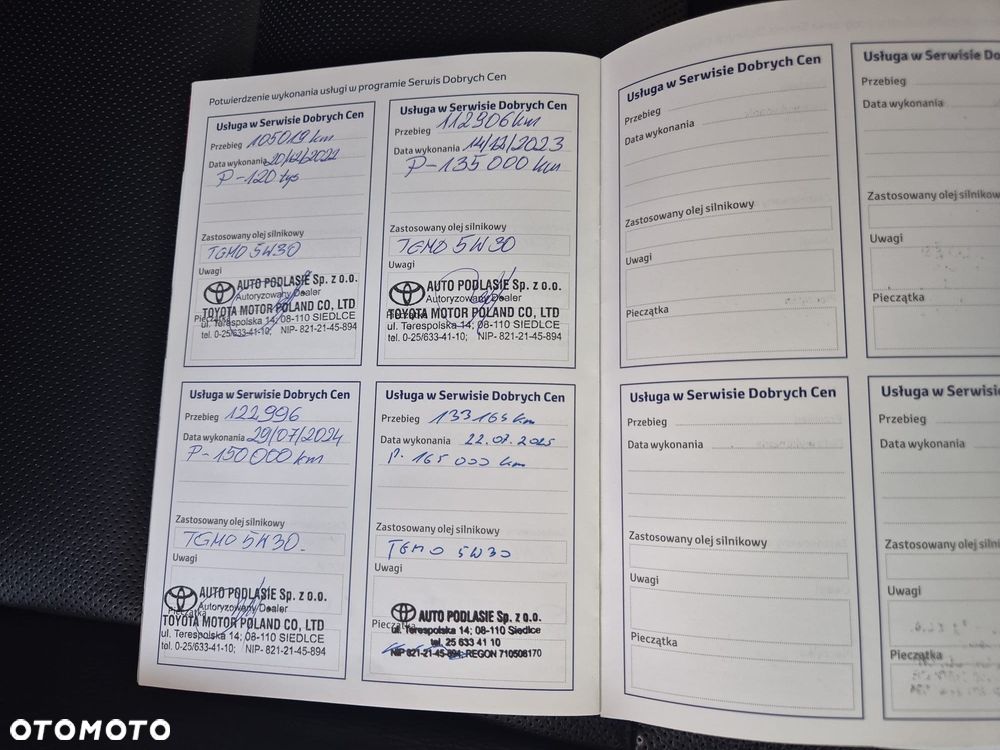 Potwierdzenie wykonania usługi w programie Serwis Dobrych Cen
Usługa w Serwisie Dobrych Cen
Przebieg 105019 km
Data wykonania 20/12/2022
P-120 tys
Zastosowany olej silnikowy
TGMO 5W30
Uwagi
AUTO PODLASIE Sp. z o.o.
Autoryzowany Dealer
TOYOTA MOTOR POLAND CO, LTD
Pieczątka
ul. Terespolska 14; 08-110 SIEDLCE
tel. 0-25/633-41-10; NIP- 821-21-45-894
Usługa w Serwisie Dobrych Cen
Przebieg 112906 km
Data wykonania 14/12/2023
P-135 000 km
Zastosowany olej silnikowy
TGMO 5W30
Uwagi
AUTO PODLASIE Sp. z o.o.
Autoryzowany Dealer
TOYOTA MOTOR POLAND CO, LTD
Pieczątka
ul. Terespolska 14; 08-110 SIEDLCE
tel. 0-25/633-41-10; NIP- 821-21-45-894
Usługa w Serwisie Dobrych Cen
Przebieg 122996
Data wykonania 29/07/2024
P-150 000 km
Zastosowany olej silnikowy
TGMO 5W30
Uwagi
AUTO PODLASIE Sp. z o.o.
Pieczątka Autoryzowany Dealer
TOYOTA MOTOR POLAND CO, LTD
ul. Terespolska 14; 08-110 SIEDLCE
tel. 0-25/633-41-10; NIP- 821-21-45-894
Usługa w Serwisie Dobrych Cen
Przebieg 133165 km
Data wykonania 22.07.2025
P. 165 000 km
Zastosowany olej silnikowy
TGMO 5W30
Uwagi
AUTO PODLASIE Sp. z o.o.
Pieczątka
ul. Terespolska 14; 08-110 Siedlce
tel. 25 633 41 10
NIP 821-21-45-894; REGON 710508170
Usługa w Serwisie Dobrych Cen
Przebieg
Data wykonania
Zastosowany olej silnikowy
Uwagi
Pieczątka
Usługa w Serwisie Do
Przebieg
Data wykonania
Zastosowany olej silnikow
Uwagi
Pieczątka
Usługa w Serwisie Dobrych Cen
Przebieg
Data wykonania
Zastosowany olej silnikowy
Uwagi
Pieczątka
Usługa w Serwisi
Przebieg
Data wykonania
Zastosowany olej silni
Uwagi
Pieczątka
OTOMOTO